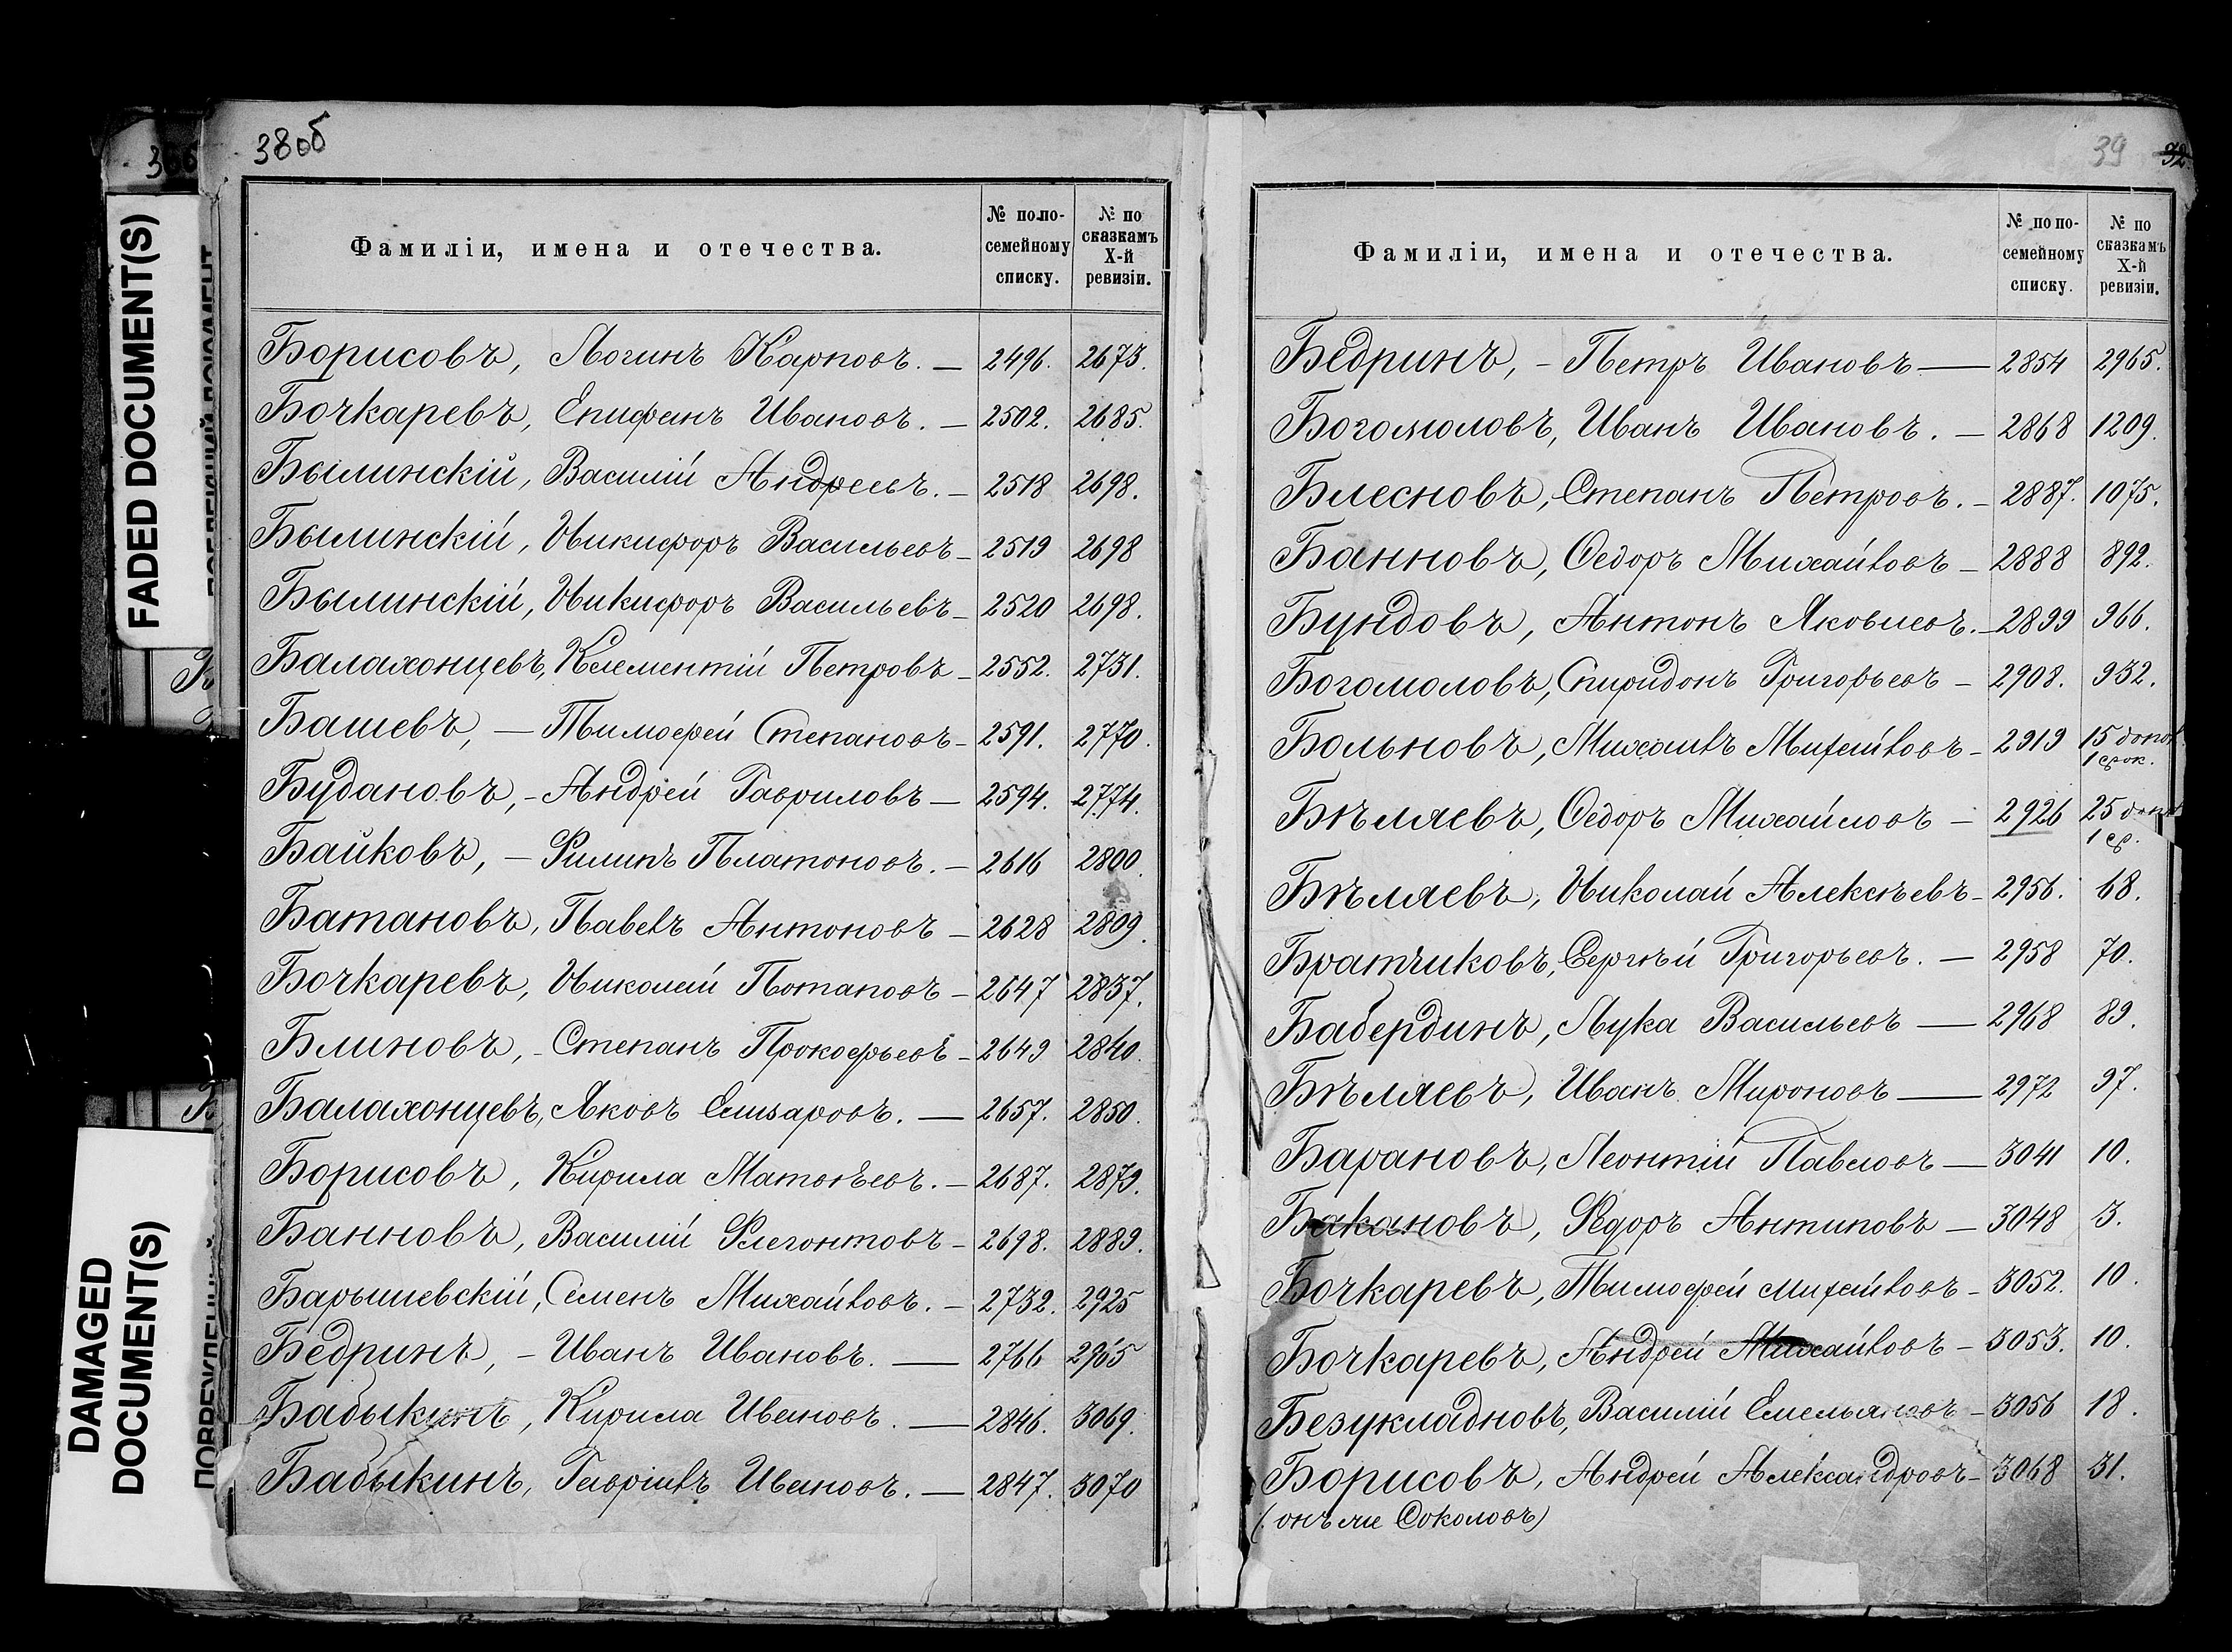 38об
Фамиліи, имена и отечества.
№ по по-
семейному
списку.
№ по
сказкамъ
X-й
ревизіи.
Борисовъ, Логинъ Карповъ. — 2496. 2673.
Бочкаревъ, Епифанъ Ивановъ. — 2502. 2685.
Былинскій, Василій Андреевъ. — 2518 2698.
Былинскій, Никифоръ Васильевъ — 2519 2698
Былинскій, Никифоръ Васильевъ — 2520 2698.
Балахонцевъ, Клементій Петровъ — 2552. 2731.
Башевъ, — Тимофей Степановъ — 2591. 2770.
Будановъ, — Андрей Гавриловъ — 2594. 2774.
Байковъ, — Филипъ Платоновъ. — 2616 2800.
Батановъ, Павелъ Антоновъ — 2628 2809.
Бочкаревъ, Николай Потаповъ — 2647 2837.
Блиновъ, — Степанъ Прокофьевъ — 2649 2840.
Балахонцевъ, Яковъ Елизаровъ. — 2657. 2850.
Борисовъ, Кирила Матвѣевъ. — 2687. 2879.
Банновъ, Василій Флегонтовъ — 2698. 2889.
Барышевскій, Семенъ Михайловъ. — 2732. 2925
Бедринъ, — Иванъ Ивановъ. — 2766 2965
Бабыкинъ, Кирила Ивановъ. — 2846. 3069.
Бабыкинъ, Гавріилъ Ивановъ. — 2847. 3070
39 32
Фамиліи, имена и отечества.
№ по по-
семейному
списку.
№ по
сказкамъ
X-й
ревизіи.
Бедринъ, — Петръ Ивановъ — 2854 2965.
Богомоловъ, Иванъ Ивановъ. — 2868 1209.
Блесновъ, Степанъ Петровъ. — 2887. 1075.
Банновъ, Ѳедоръ Михайловъ — 2888 892.
Бундовъ, Антонъ Яковлевъ. — 2899 966.
Богомоловъ, Спиридонъ Григорьевъ — 2908. 932.
Больновъ, Михаилъ Михайловъ — 2919 15
Бѣляевъ, Ѳедоръ Михайловъ — 2926 25
Бѣляевъ, Николай Алексѣевъ — 2956. 68.
Братчиковъ, Сергѣй Григорьевъ. — 2958 70.
Бабердинъ, Лука Васильевъ — 2968 89.
Бѣляевъ, Иванъ Мироновъ — 2972 97.
Барановъ, Леонтій Павловъ — 3041 10.
Бакановъ, Федоръ Антиповъ — 3048 3.
Бочкаревъ, Тимофей Михайловъ — 3052. 10.
Бочкаревъ, Андрей Михайловъ — 3053. 10.
Безукладновъ, Василій Емельяновъ — 3056 18.
Борисовъ, Андрей Александровъ — 3068 31.
(онъ же Соколовъ)
FADED DOCUMENT(S)
DAMAGED
DOCUMENT(S)